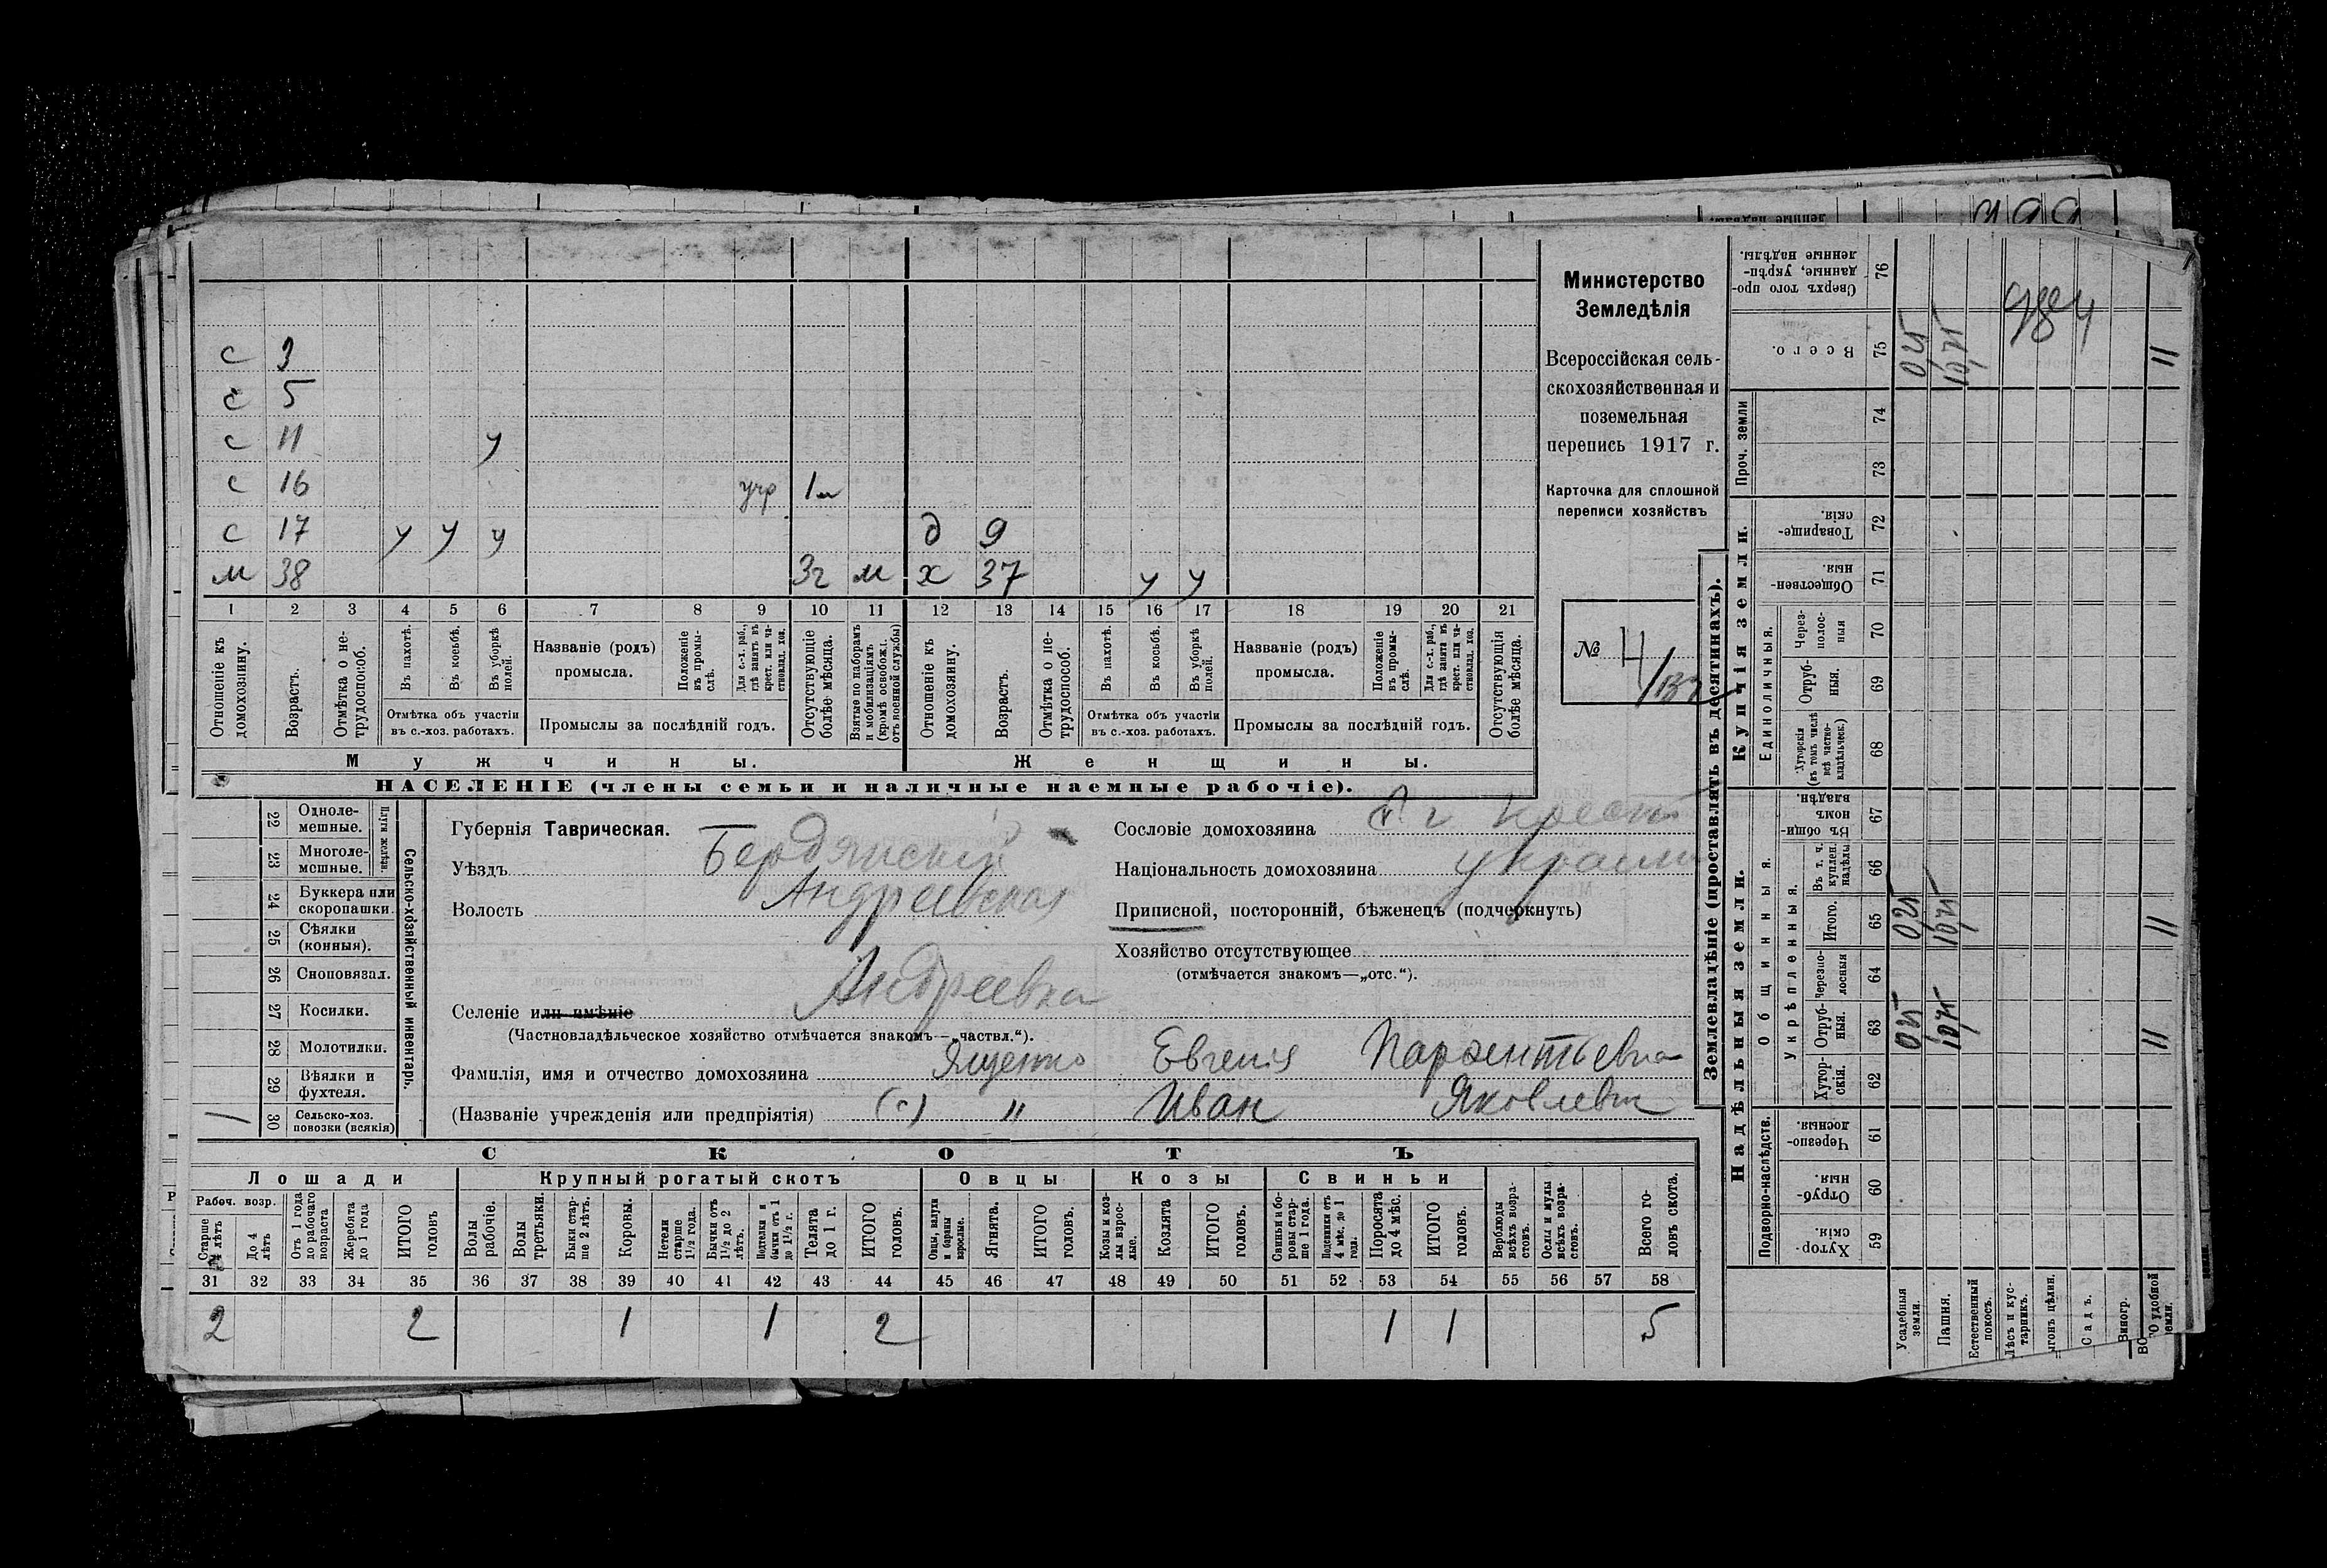 с 3
с 5
с 11 у
с 16 учр 1м
с 17 у у у д 9
м 38 3г м х 37 у у
1 2 3 4 5 6 7 8 9 10 11 12 13 14 15 16 17 18 19 20 21
Отношеніе къ домохозяину.
Возрастъ.
Отмѣтка о нетрудоспособ.
Въ пахотѣ.
Въ косьбѣ.
Въ уборкѣ полей.
Отмѣтка объ участіи
въ с.-хоз. работахъ.
Названіе (родъ)
промысла.
Положеніе въ промыслѣ.
Для с.-х. раб., гдѣ занятъ въ крест. или частновлад. хоз.
Промыслы за послѣдній годъ.
Отсутствующіе болѣе мѣсяца.
Взятые по наборамъ и мобилизаціямъ (кромѣ освобожд. отъ военной службы)
Отношеніе къ домохозяину.
Возрастъ.
Отмѣтка о нетрудоспособ.
Въ пахотѣ.
Въ косьбѣ.
Въ уборкѣ полей.
Отмѣтка объ участіи
въ с.-хоз. работахъ.
Названіе (родъ)
промысла.
Положеніе въ промыслѣ.
Для с.-х. раб., гдѣ занята въ крест. или частновлад. хоз.
Промыслы за послѣдній годъ.
Отсутствующія болѣе мѣсяца.
Мужчины. Женщины.
НАСЕЛЕНІЕ (члены семьи и наличные наемные рабочіе).
Министерство
Земледѣлія
Всероссійская сель-
скохозяйственная и
поземельная
перепись 1917 г.
Карточка для сплошной
переписи хозяйствъ
№ 4/
22 Одноле-
мешные.
23 Многоле-
мешные.
Плуги желѣзн.
24 Буккера или
скоропашки.
25 Сѣялки
(конныя).
26 Сноповязал.
27 Косилки.
28 Молотилки.
29 Вѣялки и
фухтеля.
1 30 Сельско-хоз.
повозки (всякія)
Сельско-хозяйственный инвентарь.
Губернія Таврическая.
Уѣздъ Бердянскій
Волость Андреевская
Селеніе или имѣніе Андреевка
(Частновладѣльческое хозяйство отмѣчается знакомъ—„частвл.“).
Фамилія, имя и отчество домохозяина Ященко Евгенія Парфентьевна
(Названіе учрежденія или предпріятія) (с) " Иван Яковлевич
Сословіе домохозяина крест
Національность домохозяина украин
Приписной, посторонній, бѣженецъ (подчеркнуть)
Хозяйство отсутствующее
(отмѣчается знакомъ—„отс.“).
СКОТЪ
Лошади Крупный рогатый скотъ Овцы Козы Свиньи
Рабоч. возр.
Старше 4 лѣтъ
До 4 лѣтъ
Отъ 1 года до рабочаго возраста
Жеребята до 1 года
ИТОГО головъ
Волы рабочіе.
Волы третьяки.
Быки старше 2 лѣтъ.
Коровы.
Нетели старше 1½ года.
Бычки отъ 1½ до 2 лѣтъ.
Подтелки и бычки отъ 1 до 1½ г.
Телята до 1 г.
ИТОГО головъ.
Овцы, валухи и бараны взрослые.
Ягнята.
ИТОГО головъ.
Козы и козлы взрослые.
Козлята
ИТОГО головъ.
Свиньи и боровы старше 1 года.
Подсвинки отъ 4 мѣс. до 1 года.
Поросята до 4 мѣс.
ИТОГО головъ.
Верблюды всѣхъ возрастовъ.
Ослы и мулы всѣхъ возрастовъ.
Всего головъ скота.
31 32 33 34 35 36 37 38 39 40 41 42 43 44 45 46 47 48 49 50 51 52 53 54 55 56 57 58
2 2 1 1 2 1 1 5
Землевладѣніе (проставлять въ десятинахъ).
Купчія земли.
Надѣльныя земли.
Сверхъ того проданные, укрѣпленные надѣлы. 76
Всего. 75 0,25 10,75
984
Проч. земли 74
73
Товарищескія. 72
Общественныя. 71
Единоличныя.
Черезполосныя 70
Отрубныя. 69
Хуторскія (въ томъ числѣ всѣ частновладѣльческ.) 68
Общинныя.
Въ общинномъ владѣн. 67
Укрѣпленныя.
Въ т. ч. куплен. надѣлы 66
Итого. 65 0,25 10,75 11
Черезполосныя 64
Отрубныя. 63 0,25 10,75 11
Хуторскія. 62
Подворно-наслѣдств.
Черезполосныя. 61
Отрубныя. 60
Хуторскія. 59
Усадебныя земли.
Пашня.
Естественный покосъ.
Лѣсъ и кустарникъ.
Садъ.
Виногр.
11